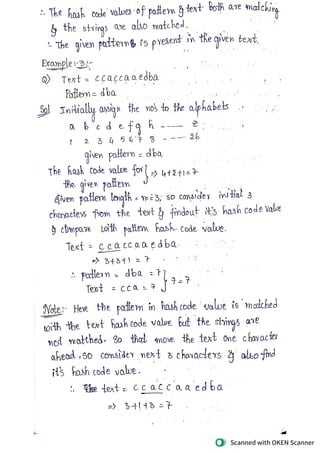 ∴ The hash code values of pattern & text both are matching
& the strings are also matched.
∴ The given patterns is present in the given text.
Example:-3:-
Q) Text = ccaccaaedba
Pattern = dba
Sol Initially assign the no's to the alphabets
a b c d e f g h ---- z
1 2 3 4 5 6 7 8 ---- 26
given pattern = dba
The hash code value for } => 4+2+1=7
the given pattern
Given pattern length = m=3; so consider initial 3
characters from the text & findout it's hash code value
& compare with pattern hash code value.
Text = ccaccaaedba
=> 3+3+1 = 7
∴ pattern = dba = 7 } 7=7
Text = cca = 7
Note:- Here the pattern in hashcode value is matched
with the text hash code value but the strings are
not matched. So that move the text one character
ahead. so consider next 3 characters & also find
it's hash code value.
∴ text = ccaccaaedba
=> 3+1+3 = 7
Scanned with OKEN Scanner